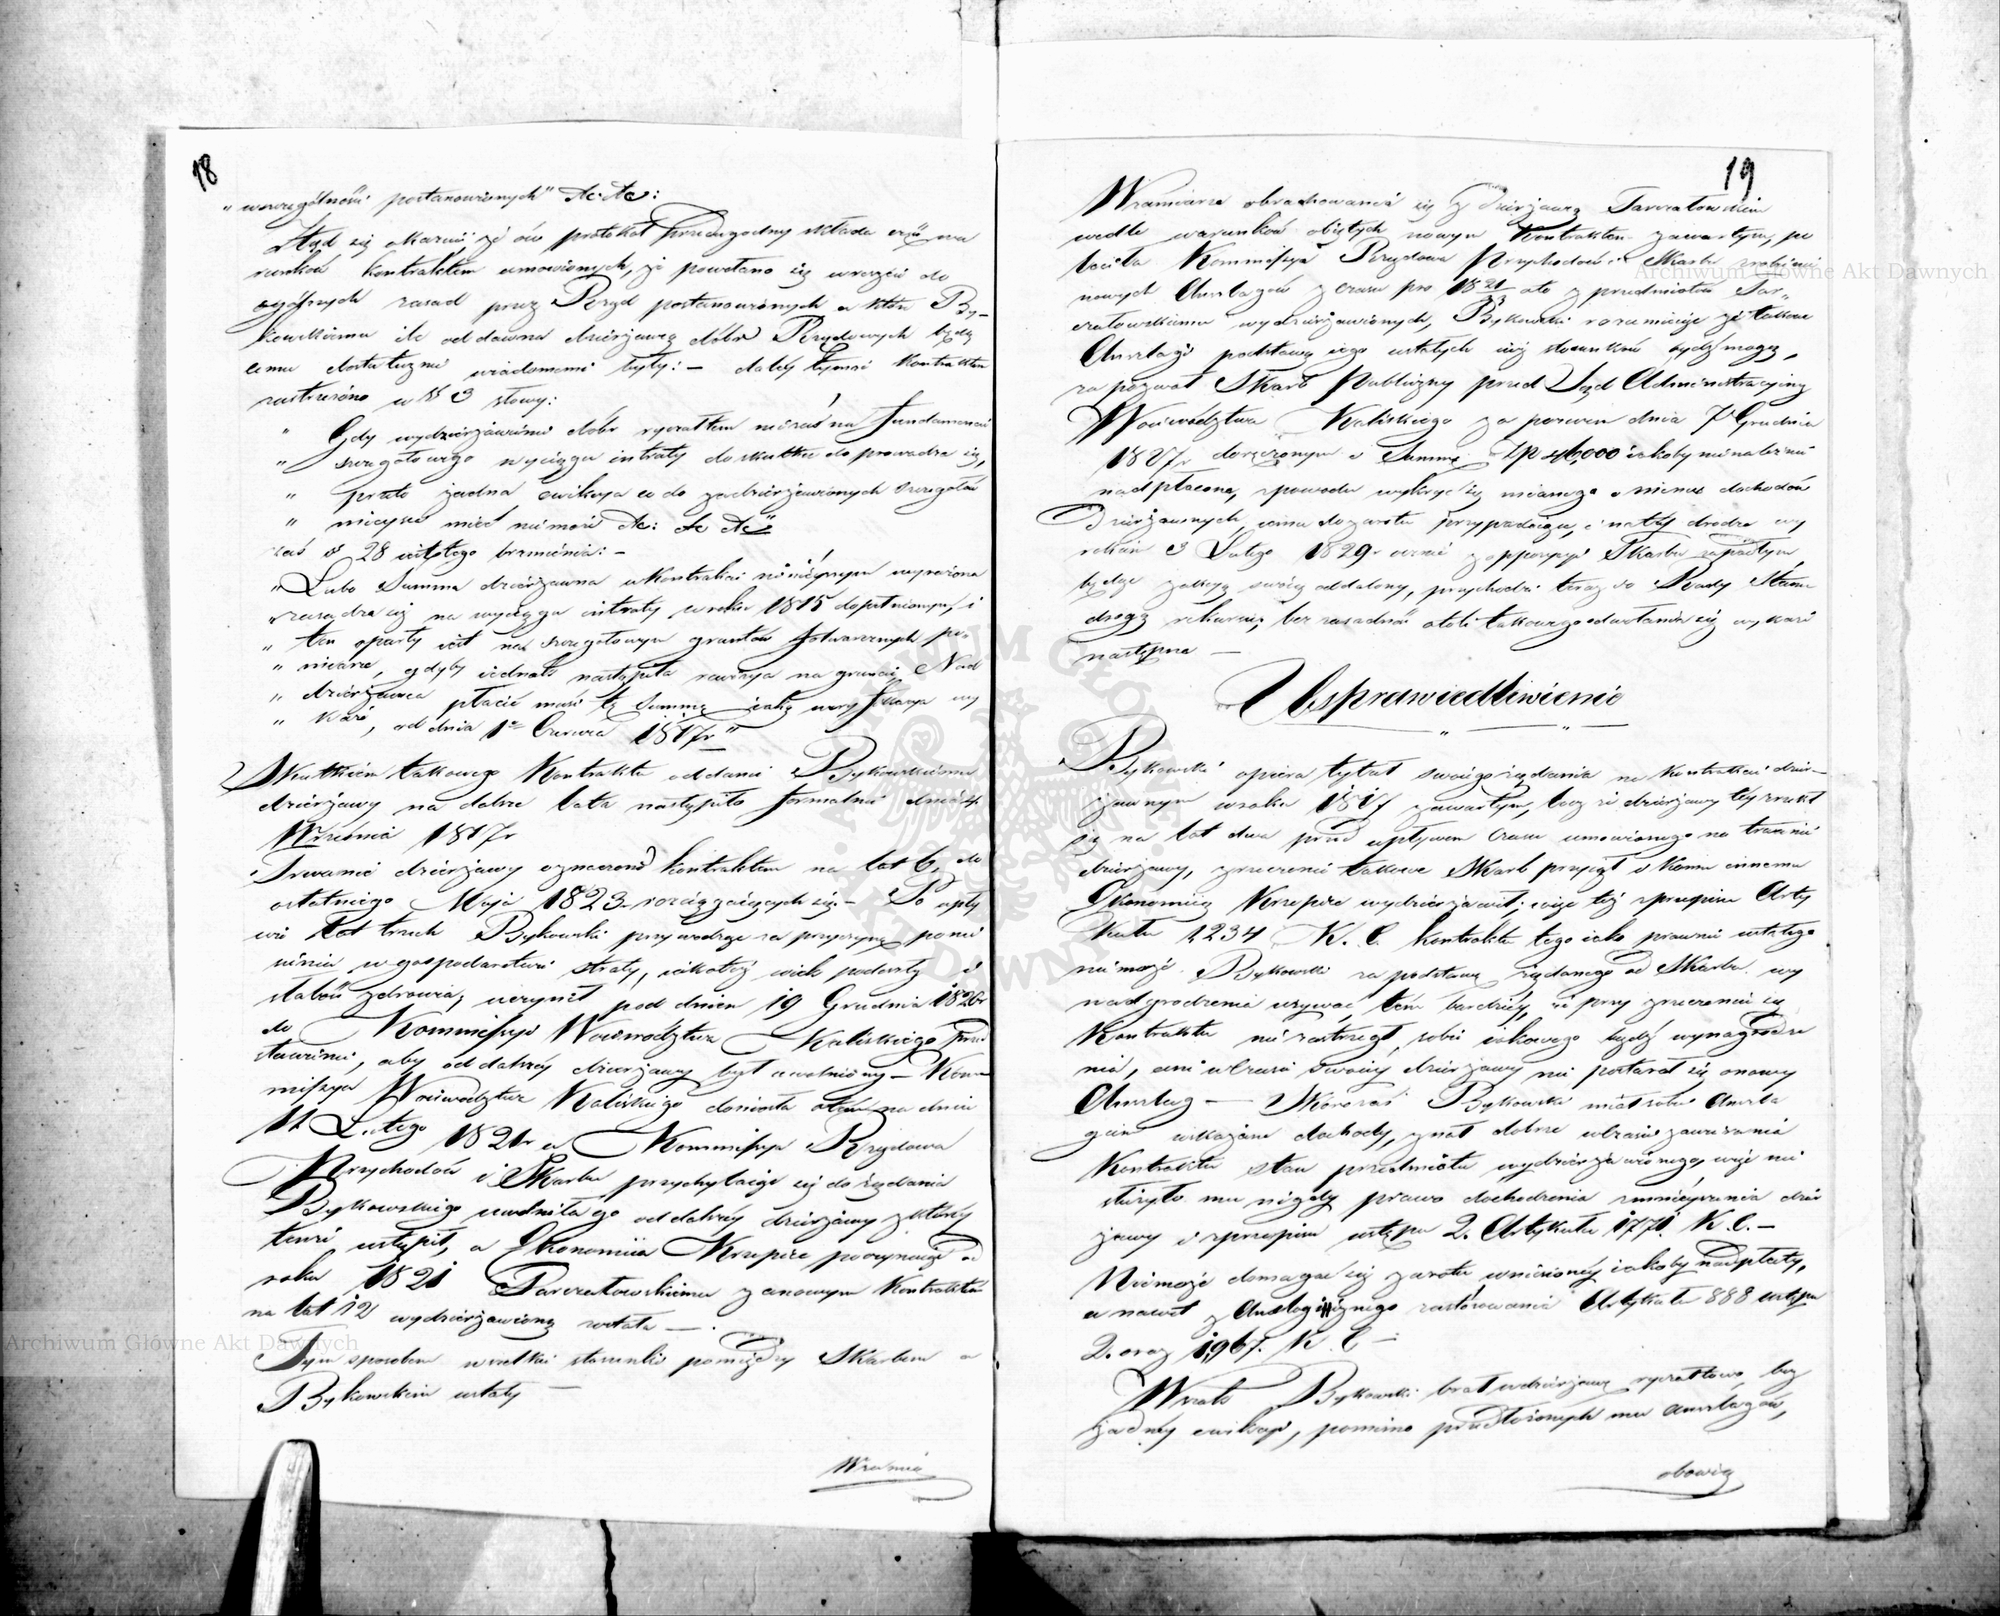 18
„wszczególności postanowionych" &c. &c:
Ztąd się okazuie, że ów protokół przedugodny składa część wa
runków kontraktem umowionych, że powołano się wreszcie do
ogólnych zasad przez Rząd postanowionych a które By-
kowskiemu ile oddawna dzierżawcą dóbr Rządowych będą
cemu dostatecznie wiadomemi były: — daléy tymże kontraktem
zastrzeżono w § 3 słowy:
„ Gdy wydzierżawienie dóbr ryczałtem nie zaś na fundamencie
„ szczegółowego wyciągu intraty do skutku doprowadza się,
„ przeto żadna ewikcya co do zadzierżawionych szczegółów
„ mieysca mieć nie może &c: &c &c"
zaś § 28 iest tego brzmienia: —
„Lubo Summa dzierżawna w kontrakcie ninieyszym wyrażona
„zasadza się na wyciągu intraty w roku 1815 dopełnionym, i
„ ten oparty iest na szczegółowym gruntów folwarcznych po-
„ miarze, gdyby iednak nastąpiła rewizya na gruncie, Nad
„ dzierżawca płacić musi tę Summę iaką weryfikacya wy
„ każe, od dnia 1o Czerwca 1817r"
Skutkiem takowego Kontraktu oddanie Bykowskiemu
dzierżawy na dobre lata nastąpiło formalnie dnia 4
Września 1817r
Trwanie dzierżawy oznaczone kontraktem na lat 6, do
ostatniego Maja 1823 rozciągaiących się. — Po upły
wie lat trzech Bykowski przywodząc za przyczynę ponie
sione w gospodarstwie straty, iakoteż wiek podeszły i
słabość zdrowia, uczynił pod dniem 19 Grudnia 1820r
do Kommissyi Woiewodztwa Kaliskiego przed
stawienie, aby od dalszéy dzierżawy był uwolniony — Kom
missya Woiewodztwa Kaliskiego doniosła o tém na dniu
Lutego 1821r a Kommissya Rządowa
Przychodów i Skarbu przychylaiąc się do żądania
Bykowskiego uwolniła go od dalszéy dzierżawy z któréy
tenże ustąpił, a Ekonomiia Krzepice poczynaiąc od
roku 1821 Parczatowskiemu zanowym Kontraktem
na lat 12 wydzierżawioną została —.
Tym sposobem wszelkie stosunki pomiędzy Skarbem a
Bykowskim ustały —
W zamia
19
W zamiarze obrachowania się z dzierżawcą Parczatowskim
wedle warunków obiętych nowym Kontraktem zawartym, po
leciła Kommissya Rządowa Przychodów i Skarbu zrobienie
nowych Anszlagów z czasu pro 1821/33 ale z przedmiotów Par-
czatowskiemu wydzierżawionych, Bykowski rozumieiąc że takowe
Anszlagi podstawą iego ustałych iuż stosunków bydź mogą,
zapozwał Skarb Publiczny przed Sąd Administracyiny
Woiewodztwa Kaliskiego za pozwem dnia 7 Grudnia
1827r doręczonym o Summę Zp 46,000 iakoby nienależnie
nadpłaconą, z powodu wykryć się maiącego omienia dochodów
Dzierżawnych, iemu do zwrotu przypadaiącą, i na téy drodze wy
rokiem 3 Lutego 1829r ocznie z oppozycyi Skarbu zapadłym
będąc zakcyą swoią oddalony, przychodzi teraz do Rady Stanu
drogą rekursu, bezzasadność atoli takowego odwołania się wykaże
następne —
Usprawiedliwienie
Bykowski opiera tytuł swoiego żądania na kontrakcie dzier-
żawnym w roku 1817 zawartym, lecz że dzierżawy téy zrzekł
się na lat dwa przed upływem czasu umowionego na trwanie
dzierżawy, zrzeczenie takowe Skarb przyiął i komu innemu
Ekonomią Krzepice wydzierżawił; więc téż z przepisu Arty
kułu 1234 K. C. kontraktu tego iako prawnie ustałego
nie może Bykowski za podstawę żądanego od Skarbu wy
nadgrodzenia używać, tem bardziéy, że przy zrzeczeniu się
Kontraktu nie zastrzegł sobie iakowego bądź wynagrodze
nia, ani w czasie swoiéy dzierżawy nie postarał się o nowy
Anszlag — Skoro zaś Bykowski miał sobie Anszla
gim wskazane dochody, znał dobrze w czasie zawierania
Kontraktu stan przedmiotu wydzierżawionego, więc nie
służyło mu nigdy prawo dochodzenia zmnieyszenia dzier
żawy i z przepisu ustępu 2. Artykułu 1771. K. C. —
Nie może domagać się zwrotu wniesionéy iakoby nadpłaty,
a nawet z Analogicznego zastosowania Artykułu 888 ustępu
2. oraz 1967. K. C —
Wszak Bykowski brał w dzierżawę ryczałtowo, bez
żadnéy ewikcyi, pomimo przedłożonych mu Anszlagów,
obowią